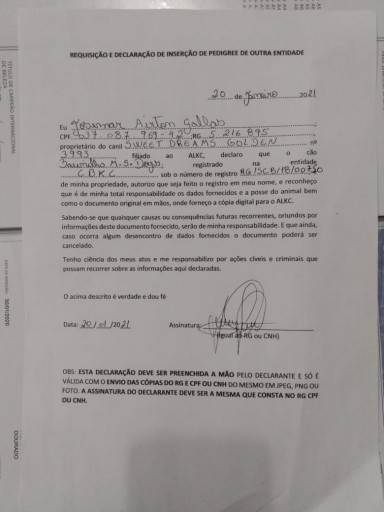 REQUISIÇÃO E DECLARAÇÃO DE INSERÇÃO DE PEDIGREE DE OUTRA ENTIDADE
20 de Janeiro 2021
Eu Josimar Airton Gallas
CPF 637 087 969-92 RG 5 216 895
proprietário do canil SWEET DREAMS GOLDEN nº
3993 filiado ao ALKC, declaro que o cão
M.S. Dogs registrado na entidade
CBKC sob o número de registro RG/SCB/18/00
de minha propriedade, autorizo que seja feito o registro em meu nome, e reconheço
que é de minha total responsabilidade os dados fornecidos e a posse do animal bem
como o documento original em mãos, onde forneço a cópia digital para o ALKC.
Sabendo-se que quaisquer causas ou consequências futuras recorrentes, oriundos por
informações deste documento fornecido, serão de minha responsabilidade. E que ainda,
caso ocorra algum desencontro de dados fornecidos o documento poderá ser
cancelado.
Tenho ciência dos meus atos e me responsabilizo por ações cíveis e criminais que
possam recorrer sobre as informações aqui declaradas.
O acima descrito é verdade e dou fé
Data: 20/01/2021 Assinatura:
(Igual ao RG ou CNH)
OBS: ESTA DECLARAÇÃO DEVE SER PREENCHIDA A MÃO PELO DECLARANTE E SÓ É
VÁLIDA COM O ENVIO DAS CÓPIAS DO RG E CPF OU CNH DO MESMO EM JPEG, PNG OU
FOTO. A ASSINATURA DO DECLARANTE DEVE SER A MESMA QUE CONSTA NO RG CPF
OU CNH.
DOURADO